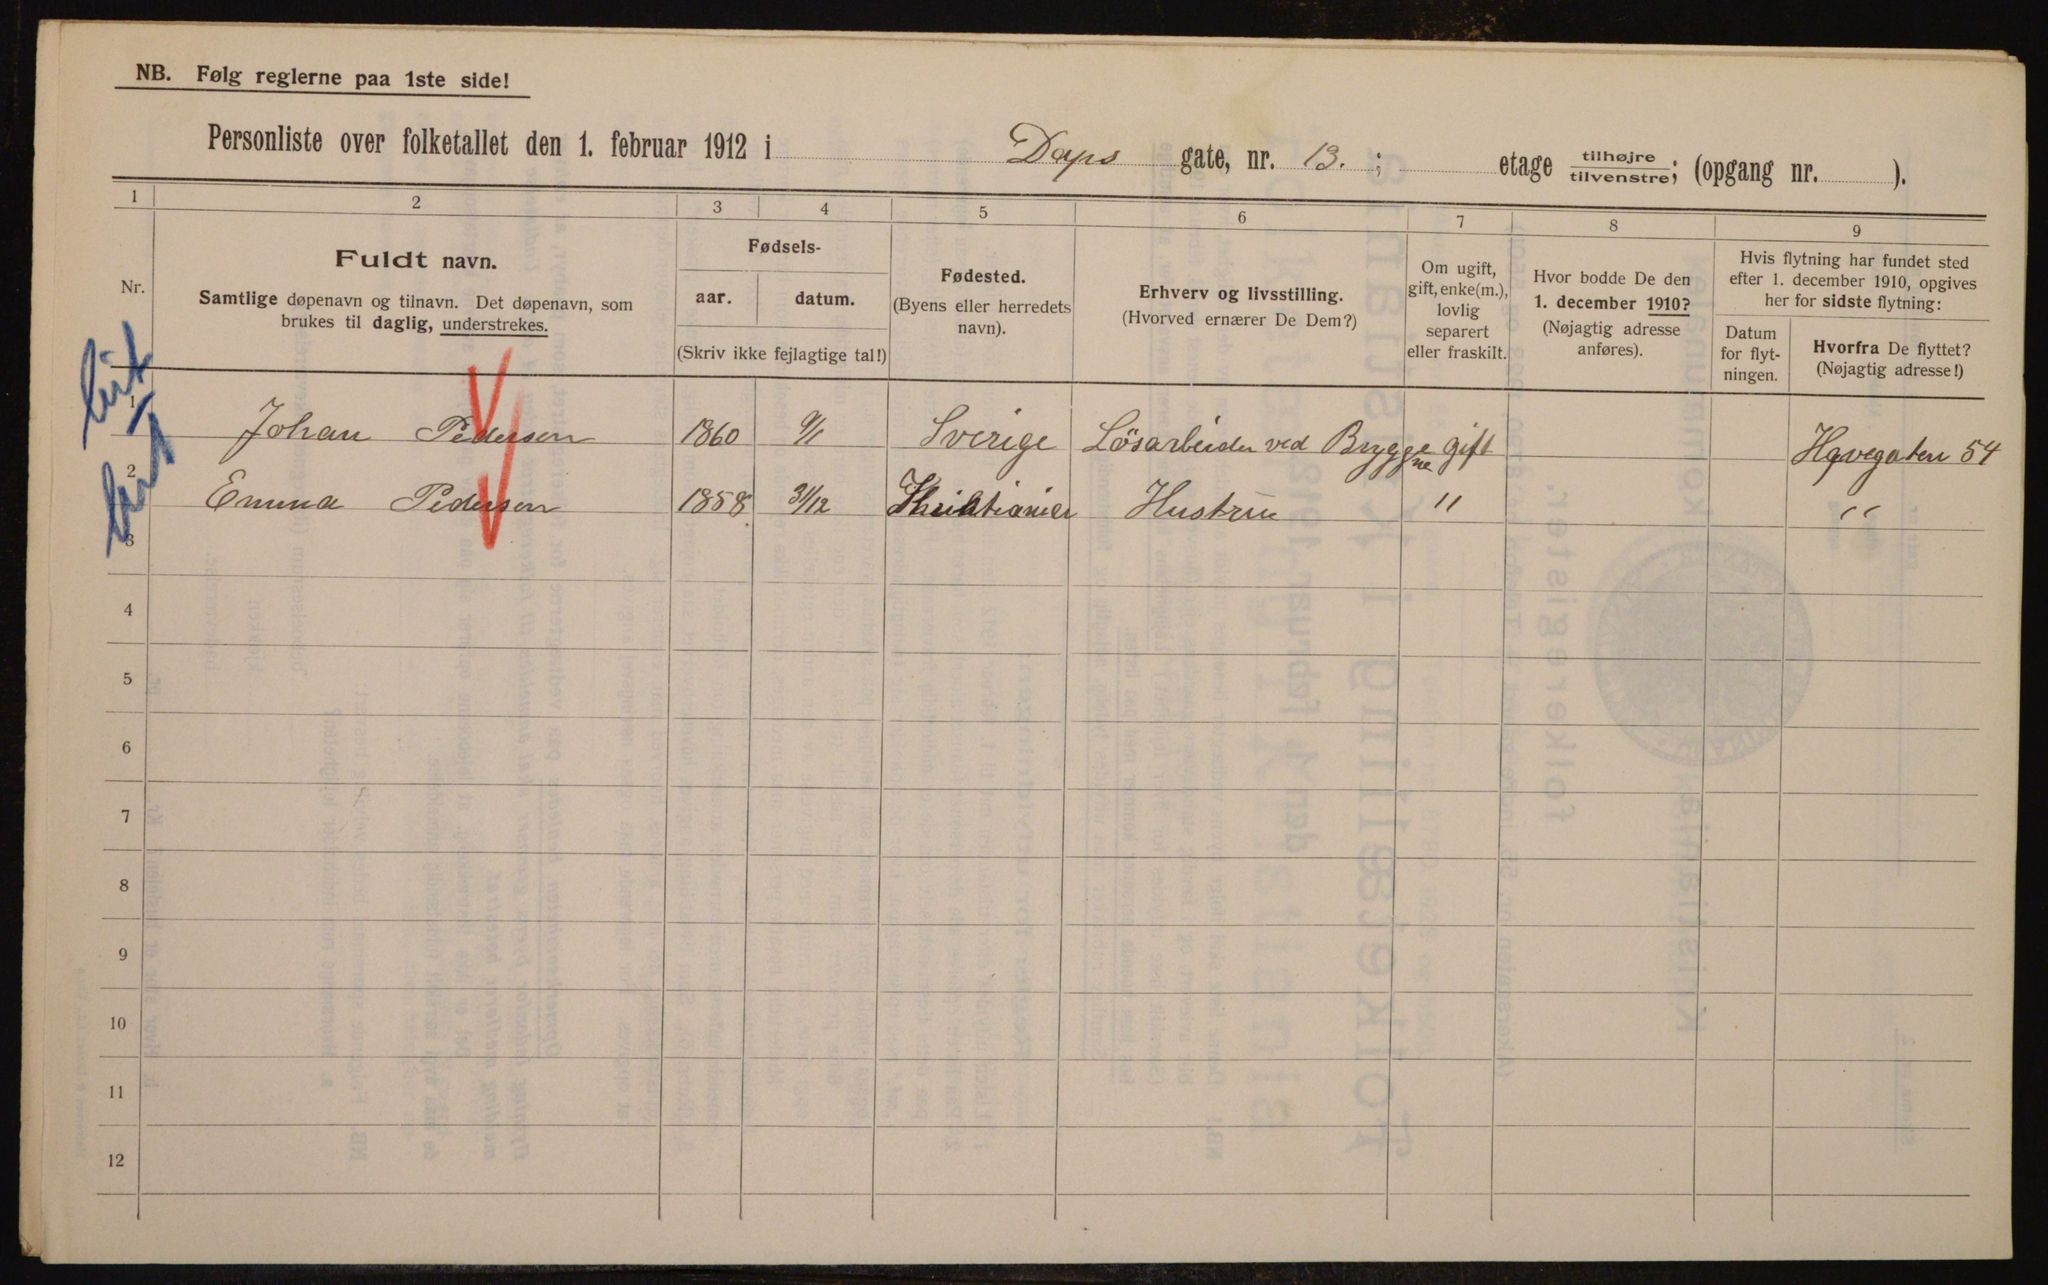 NB. Følg reglerne paa 1ste side!
Personliste over folketallet den 1. februar 1912 i Daps gate, nr. 13. ; etage tilhøjre tilvenstre; (opgang nr. ).
1 2 3 4 5 6 7 8 9
Nr.
Fuldt navn.
Samtlige døpenavn og tilnavn. Det døpenavn, som
brukes til daglig, understrekes.
Fødsels-
aar. datum.
(Skriv ikke fejlagtige tal!)
Fødested.
(Byens eller herredets
navn).
Erhverv og livsstilling.
(Hvorved ernærer De Dem?)
Om ugift,
gift, enke(m.),
lovlig
separert
eller fraskilt.
Hvor bodde De den
1. december 1910?
(Nøjagtig adresse
anføres).
Hvis flytning har fundet sted
efter 1. december 1910, opgives
her for sidste flytning:
Datum
for flyt-
ningen.
Hvorfra De flyttet?
(Nøjagtig adresse!)
1 Johan Pedersen 1860 9/1 Sverige Lösarbeider ved Bryggene gift Havegaten 54
2 Emma Pedersen 1858 31/12 Khristiania Hustru " "
3
4
5
6
7
8
9
10
11
12